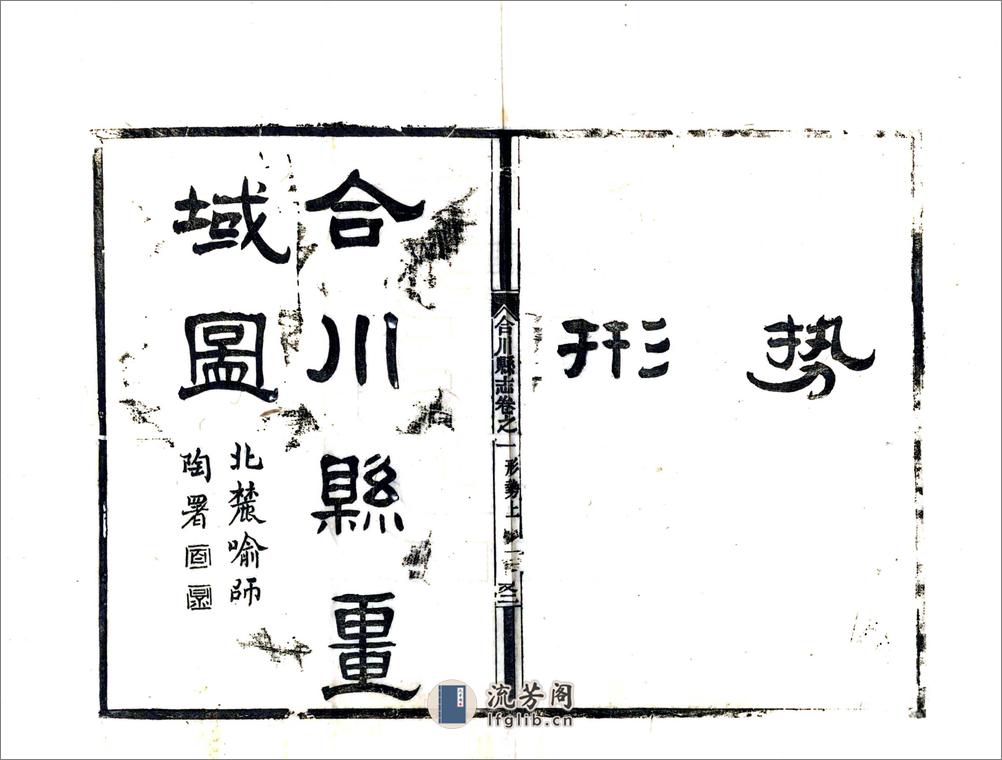 形势
合川縣志卷之一
形勢上
合川縣畺
域圖
北麓喻師
陶署
流芳阁
lfglib.cn